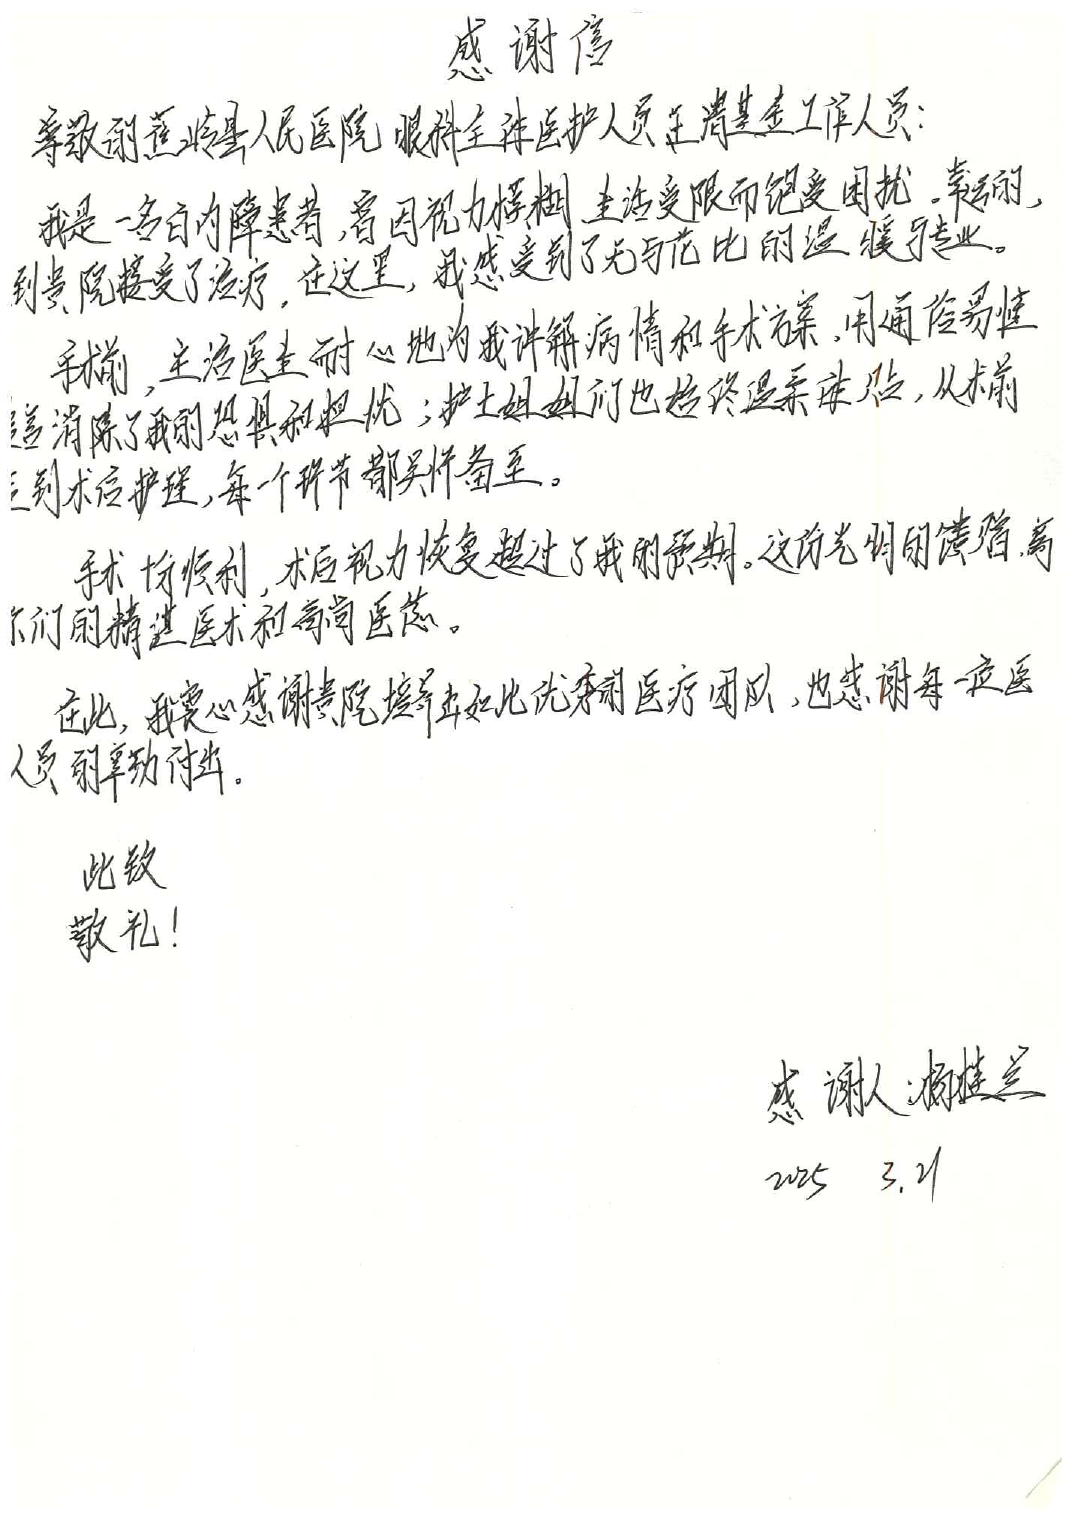 感谢信
尊敬的蕉岭县人民医院眼科全体医护人员 基金工作人员：
我是一名白内障患者，曾因视力模糊 生活受限而饱受困扰。幸运的，
到贵院接受了治疗，在这里，我感受到了无与伦比的温暖与专业。
手术前，主治医生耐心地为我讲解病情和手术方案，用通俗易懂
言消除了我的恐惧和担忧；护士姐姐们也始终温柔 ，从术前
到术后护理，每一个环节都关怀备至。
手术十分顺利，术后视力恢复超过了我的预期。这份光明的馈赠，离
你们的精湛医术和高尚医德。
在此，我衷心感谢贵院培养出如此优秀的医疗团队，也感谢每一位医
人员的辛勤付出。
此致
敬礼！
感谢人：杨桂兰
2025 3.21